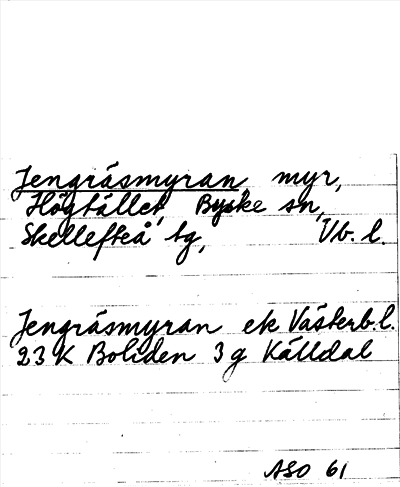 Jengräsmyran, myr,
Högfället, Byske sn,
Skellefteå tg, Vb. l.
Jengräsmyran ek Västerb.l.
23 K Boliden 3 g Källdal
ASO 61